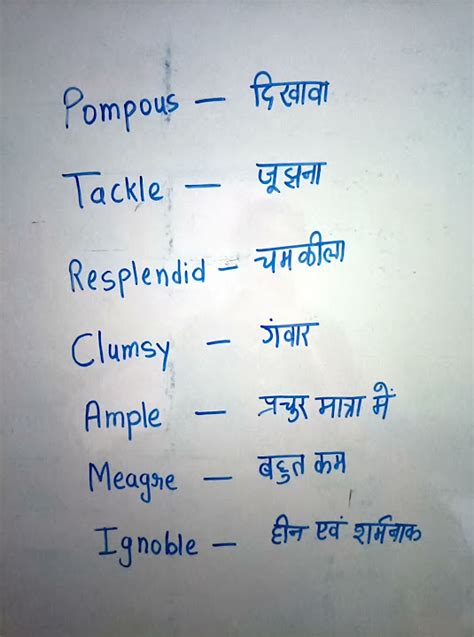 Pompous — दिखावा
Tackle — जूझना
Resplendid — चमकीला
Clumsy — गंवार
Ample — प्रचुर मात्रा में
Meagre — बहुत कम
Ignoble — हीन एवं शर्मनाक